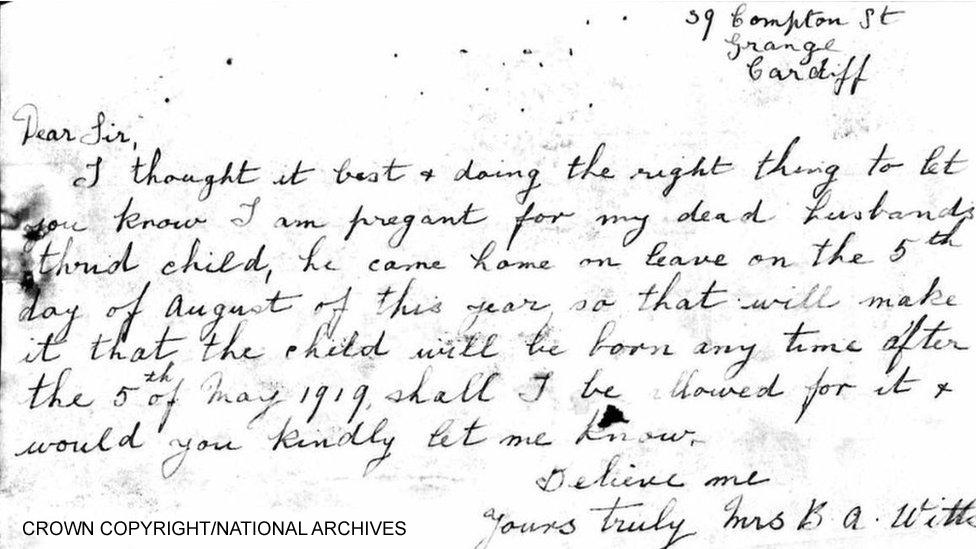 39 Compton St
Grange
Cardiff
Dear Sir,
I thought it best & doing the right thing to let
you know I am pregant for my dead husbands
thrud child, he came home on leave on the 5th
day of August of this year so that will make
it that the child will be born any time after
the 5th of May 1919, shall I be allowed for it &
would you kindly let me know.
Believe me
Yours truly Mrs B A. Witts
CROWN COPYRIGHT/NATIONAL ARCHIVES